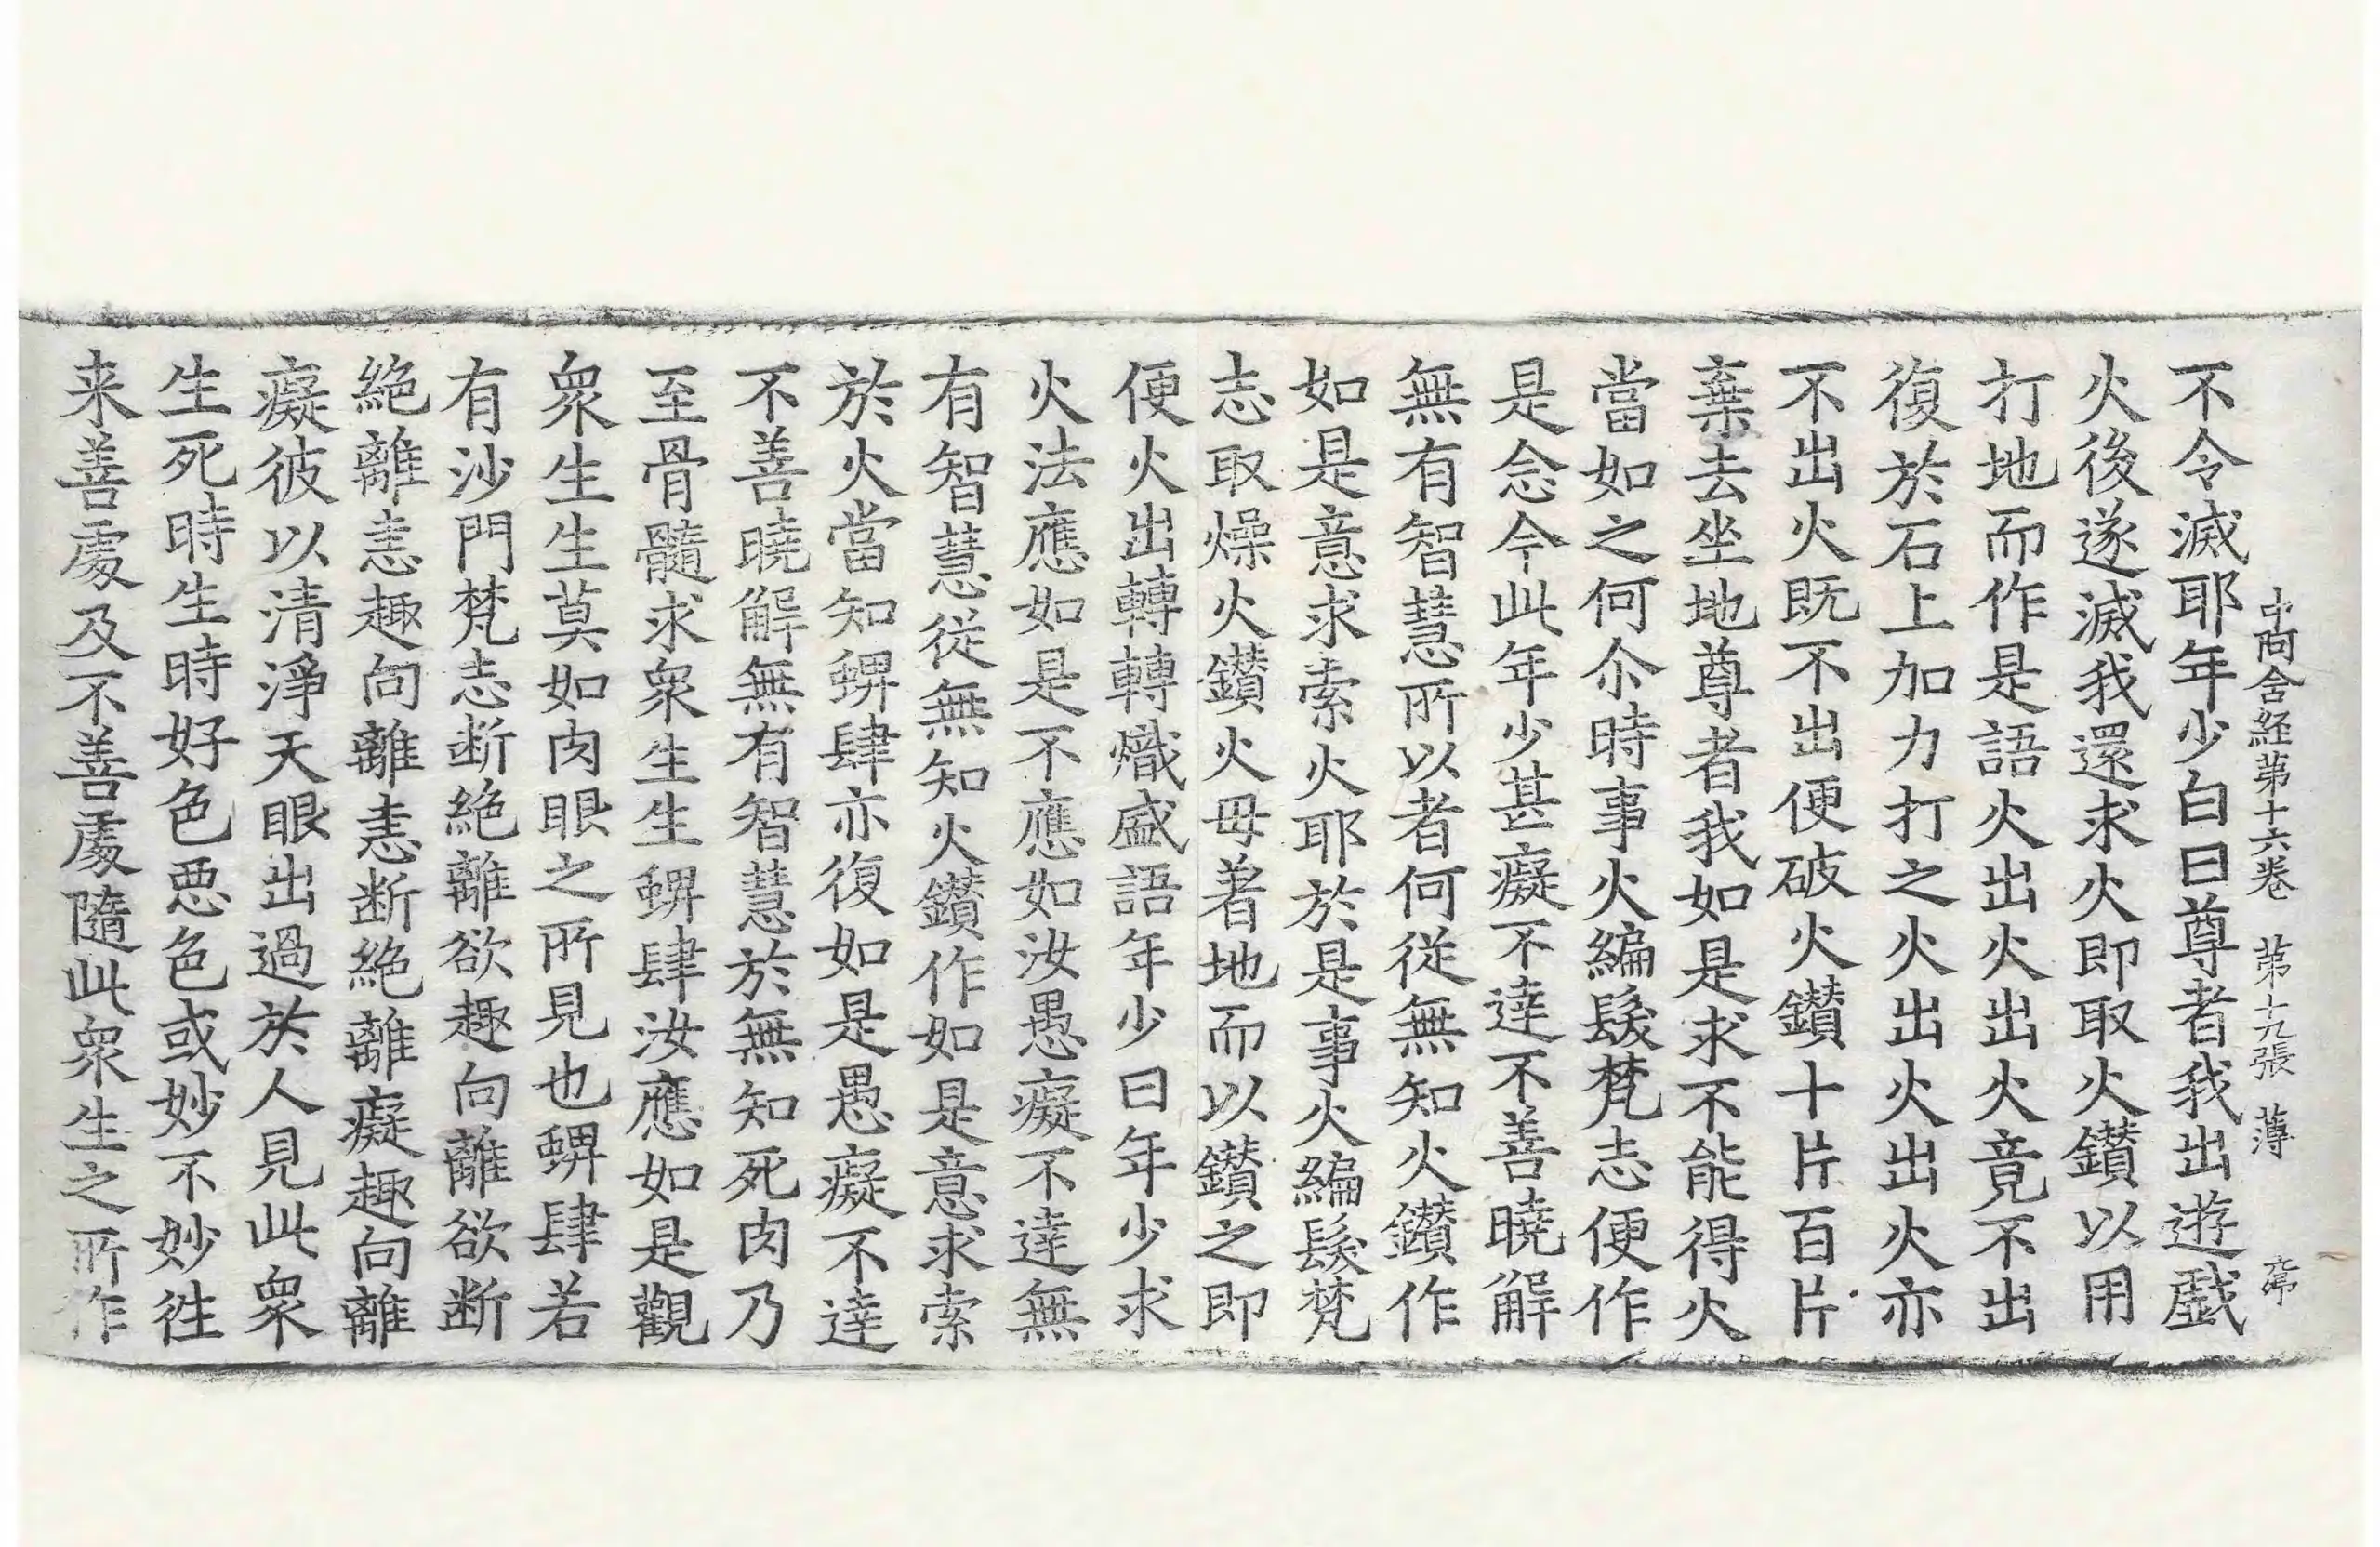 中阿含経第十六卷　第十九張　薄
不令滅耶年少白曰尊者我出遊戱
火後遂滅我還求火即取火鑚以用
打地而作是語火出火出火竟不出
復於石上加力打之火出火出火亦
不出火既不出便破火鑚十片百片
棄去坐地尊者我如是求不能得火
當如之何尒時事火編髮梵志便作
是念今此年少甚癡不達不善曉解
無有智慧所以者何從無知火鑚作
如是意求索火耶於是事火編髮梵
志取燥火鑚火母著地而以鑚之即
便火出轉轉熾盛語年少曰年少求
火法應如是不應如汝愚癡不達無
有智慧從無知火鑚作如是意求索
於火當知蜱肆亦復如是愚癡不達
不善曉解無有智慧於無知死肉乃
至骨髓求衆生生蜱肆汝應如是觀
衆生生莫如肉眼之所見也蜱肆若
有沙門梵志断絶離欲趣向離欲断
絶離恚趣向離恚断絶離癡趣向離
癡彼以清淨天眼出過於人見此衆
生死時生時好色悪色或妙不妙往
来善處及不善處隨此衆生之所作